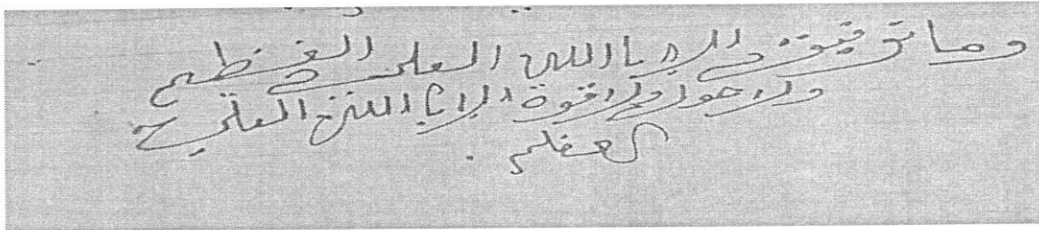 وما توفيقي إلا بالله العلي العظيم
ولا حول ولا قوة إلا بالله العلي
العظيم .